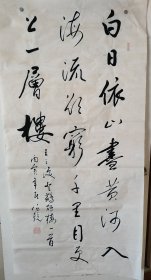 白日依山盡黄河入
海流欲窮千里目更
上一層樓
王之渙登鸛雀樓一首